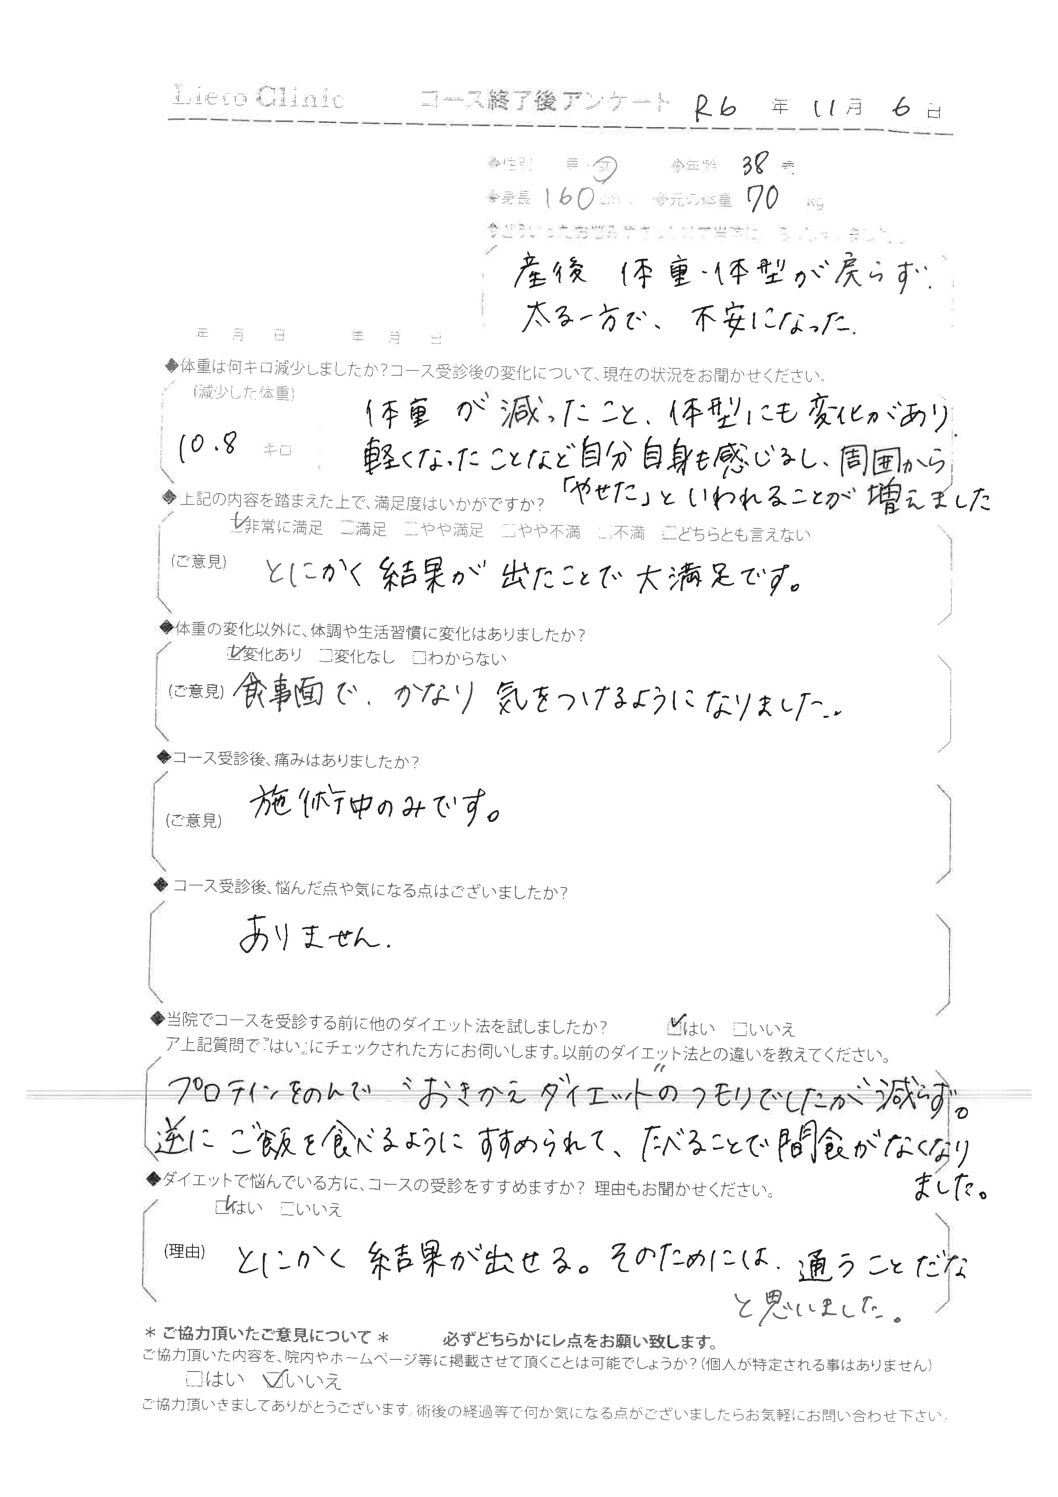 Lieto Clinic コース終了後アンケート R6 年 11 月 6 日
◆性別 男・女 ◆年齢 38 歳
◆身長 160 cm ◆元の体重 70 kg
産後 体重・体型が戻らず、
太る一方で、不安になった。
年 月 日 年 月 日
◆体重は何キロ減少しましたか?コース受診後の変化について、現在の状況をお聞かせください。
(減少した体重)
10.8 キロ
体重が減ったこと、体型にも変化があり、
軽くなったことなど自分自身も感じるし、周囲から
「やせた」といわれることが増えました
◆上記の内容を踏まえた上で、満足度はいかがですか?
☑非常に満足 □満足 □やや満足 □やや不満 □不満 □どちらとも言えない
(ご意見) とにかく結果が出たことで大満足です。
◆体重の変化以外に、体調や生活習慣に変化はありましたか?
☑変化あり □変化なし □わからない
(ご意見) 食事面で、かなり気をつけるようになりました。
◆コース受診後、痛みはありましたか?
(ご意見) 施術中のみです。
◆コース受診後、悩んだ点や気になる点はございましたか?
ありません。
◆当院でコースを受診する前に他のダイエット法を試しましたか? ☑はい □いいえ
ア上記質問で『はい』にチェックされた方にお伺いします。以前のダイエット法との違いを教えてください。
プロテインをのんで “おきかえダイエット”のつもりでしたが減らず。
逆にご飯を食べるようにすすめられて、たべることで間食がなくなり
ました。
◆ダイエットで悩んでいる方に、コースの受診をすすめますか? 理由もお聞かせください。
☑はい □いいえ
(理由) とにかく結果が出せる。そのためには、通うことだな
と思いました。
＊ ご協力頂いたご意見について ＊ 必ずどちらかにレ点をお願い致します。
ご協力頂いた内容を、院内やホームページ等に掲載させて頂くことは可能でしょうか?(個人が特定される事はありません)
□はい ☑いいえ
ご協力頂いきましてありがとうございます。術後の経過等で何か気になる点がございましたらお気軽にお問い合わせ下さい。